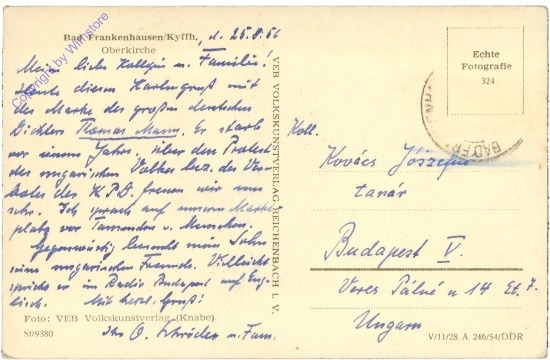 Bad Frankenhausen/Kyffh., d. 25.8.56
Oberkirche
Meine liebe Kollegin u. Familie!
Heute diesen Kartengruß mit
der Marke des großen deutschen
Dichters Thomas Mann. Er starb
vor einem Jahre. Über den Protest
des ungarischen Volkes bez. des Ver-
botes der KPD freuen wir uns
sehr. Ich sprach auf unserm Markt-
platz vor Tausenden v. Menschen.
Gegenwärtig besucht mein Sohn
seine ungarischen Freunde. Vielleicht
spricht er im Radio Budapest auf Eng-
lisch. Mit herzl. Gruß!
Ihr O. Schröder u. Fam.
Foto: VEB Volkskunstverlag (Knabe)
S19380
VEB VOLKSKUNSTVERLAG REICHENBACH I. V.
Echte
Fotografie
324
BAD FR
Koll.
Kovács Józsefné
tanár
Budapest V.
Veres Pálné u 14 Et. 7.
Ungarn
V/11/28 A 246/54/DDR
Copyright by Wilnstore